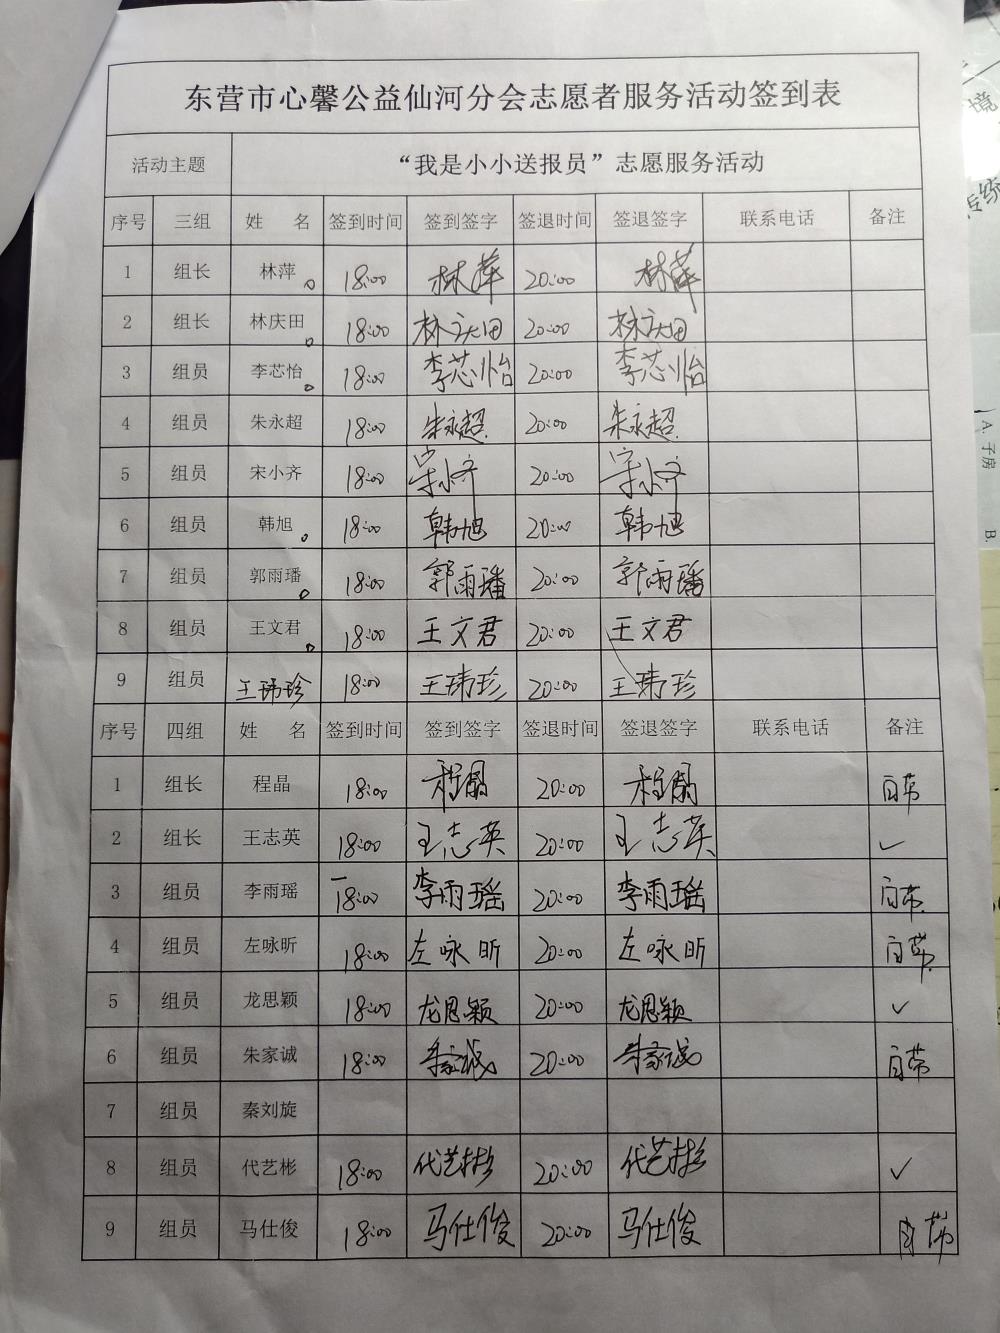 东营市心馨公益仙河分会志愿者服务活动签到表
活动主题 “我是小小送报员”志愿服务活动
序号 三组 姓 名 签到时间 签到签字 签退时间 签退签字 联系电话 备注
1 组长 林萍 18:00 林萍 20:00 林萍
2 组长 林庆田 18:00 林庆田 20:00 林庆田
3 组员 李芯怡 18:00 李芯怡 20:00 李芯怡
4 组员 朱永超 18:00 朱永超 20:00 朱永超
5 组员 宋小齐 18:00 宋小齐 20:00 宋小齐
6 组员 韩旭 18:00 韩旭 20:00 韩旭
7 组员 郭雨璠 18:00 郭雨璠 20:00 郭雨璠
8 组员 王文君 18:00 王文君 20:00 王文君
9 组员 王玮珍 18:00 王玮珍 20:00 王玮珍
序号 四组 姓 名 签到时间 签到签字 签退时间 签退签字 联系电话 备注
1 组长 程晶 18:00 程晶 20:00 程晶 自带
2 组长 王志英 18:00 王志英 20:00 王志英 ✓
3 组员 李雨瑶 18:00 李雨瑶 20:00 李雨瑶 自带
4 组员 左咏昕 18:00 左咏昕 20:00 左咏昕 自带
5 组员 龙思颖 18:00 龙思颖 20:00 龙思颖 ✓
6 组员 朱家诚 18:00 朱家诚 20:00 朱家诚 自带
7 组员 秦刘旋
8 组员 代艺彬 18:00 代艺彬 20:00 代艺彬 ✓
9 组员 马仕俊 18:00 马仕俊 20:00 马仕俊 自带
境
传统
A. 子房
B.